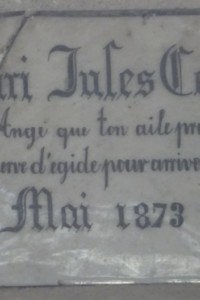 ri Jules C
Ange que ton aile pr
erve d'égide pour arrive
Mai 1873